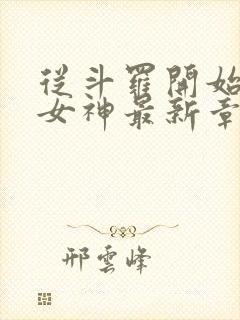 從斗羅開始
女神最新章
邢雲峰